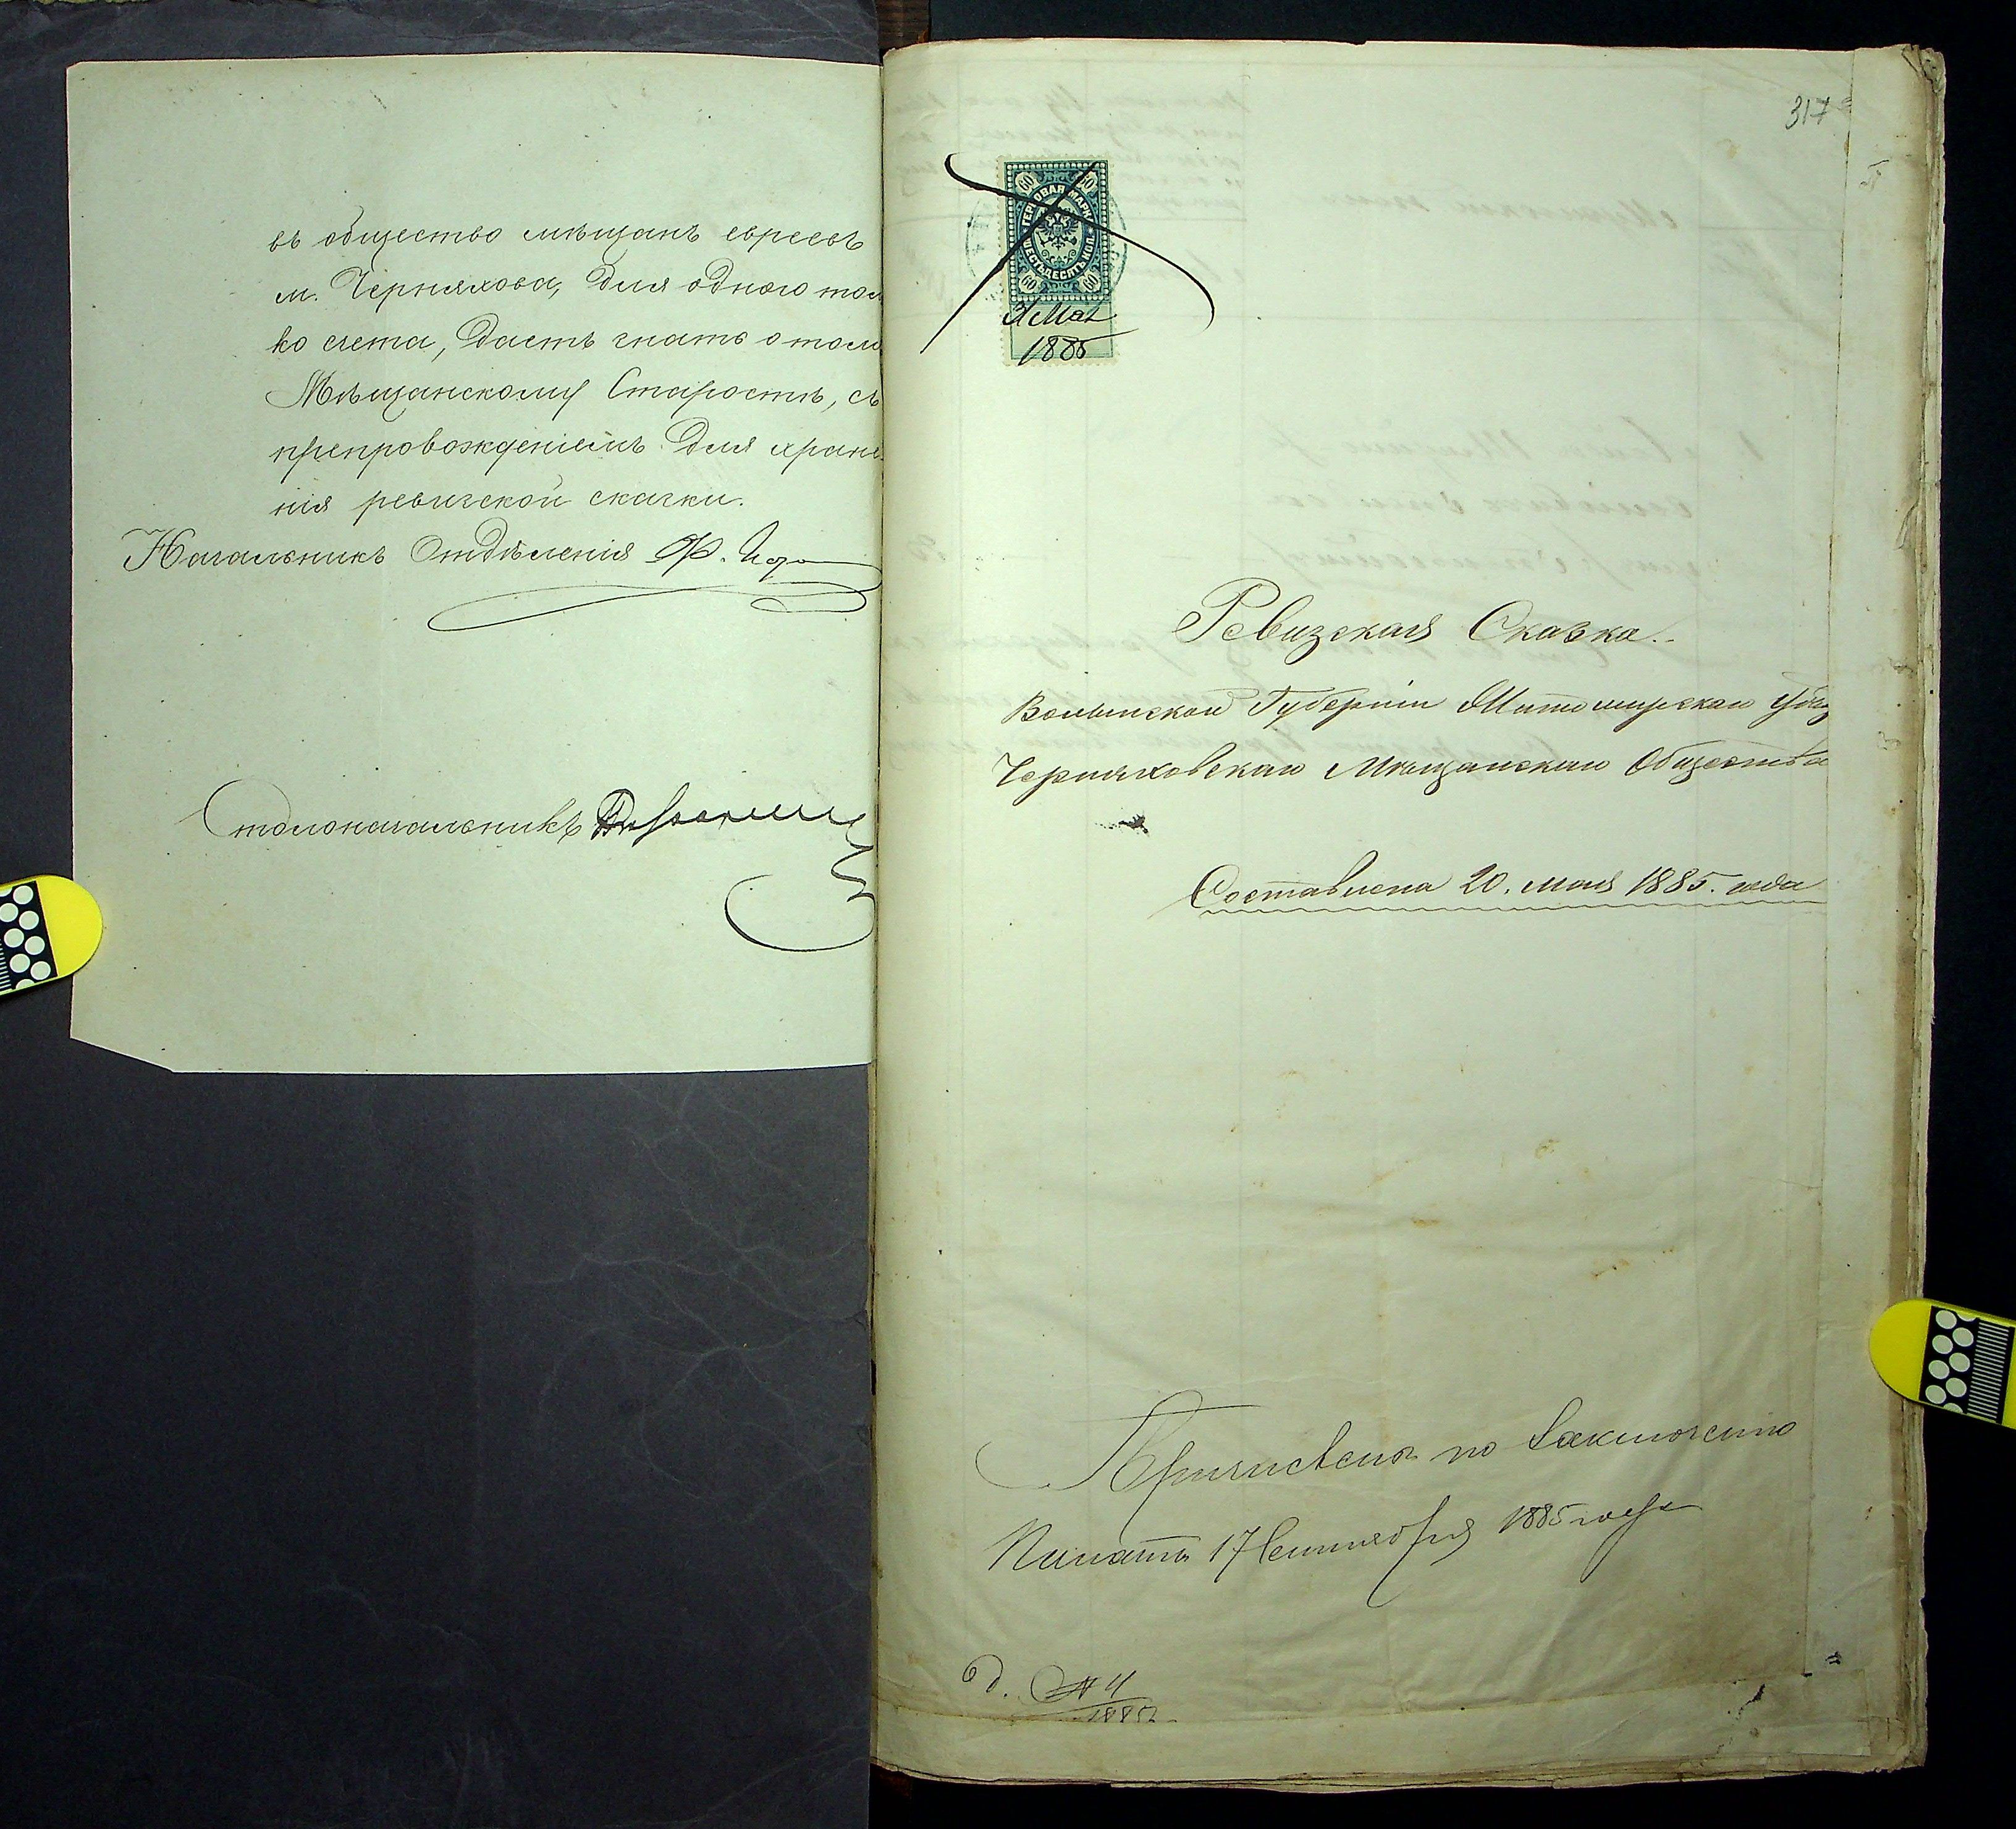 въ общество мѣщанъ евреевъ
м. Черняхова, для одного толь
ко счета, дастъ знать о томъ
Мѣщанскому Старостѣ, съ
препровожденіемъ для хране
нія ревизской сказки.
Начальникъ Отдѣленія Ф.
Столоначальникъ
317
60 60
ГЕРБОВАЯ МАРКА
ШЕСТЬДЕСЯТЪ КОП.
60 60
31 Мая
1885
Ревизская Сказка.
Волынской Губерніи Житомирскаго Уѣзд
Черняховскаго Мѣщанскаго Общества
Составлена 20. мая 1885. года
Причислена по Заключенію
Палаты 17 Сентября 1885 года
д. № 4
1885